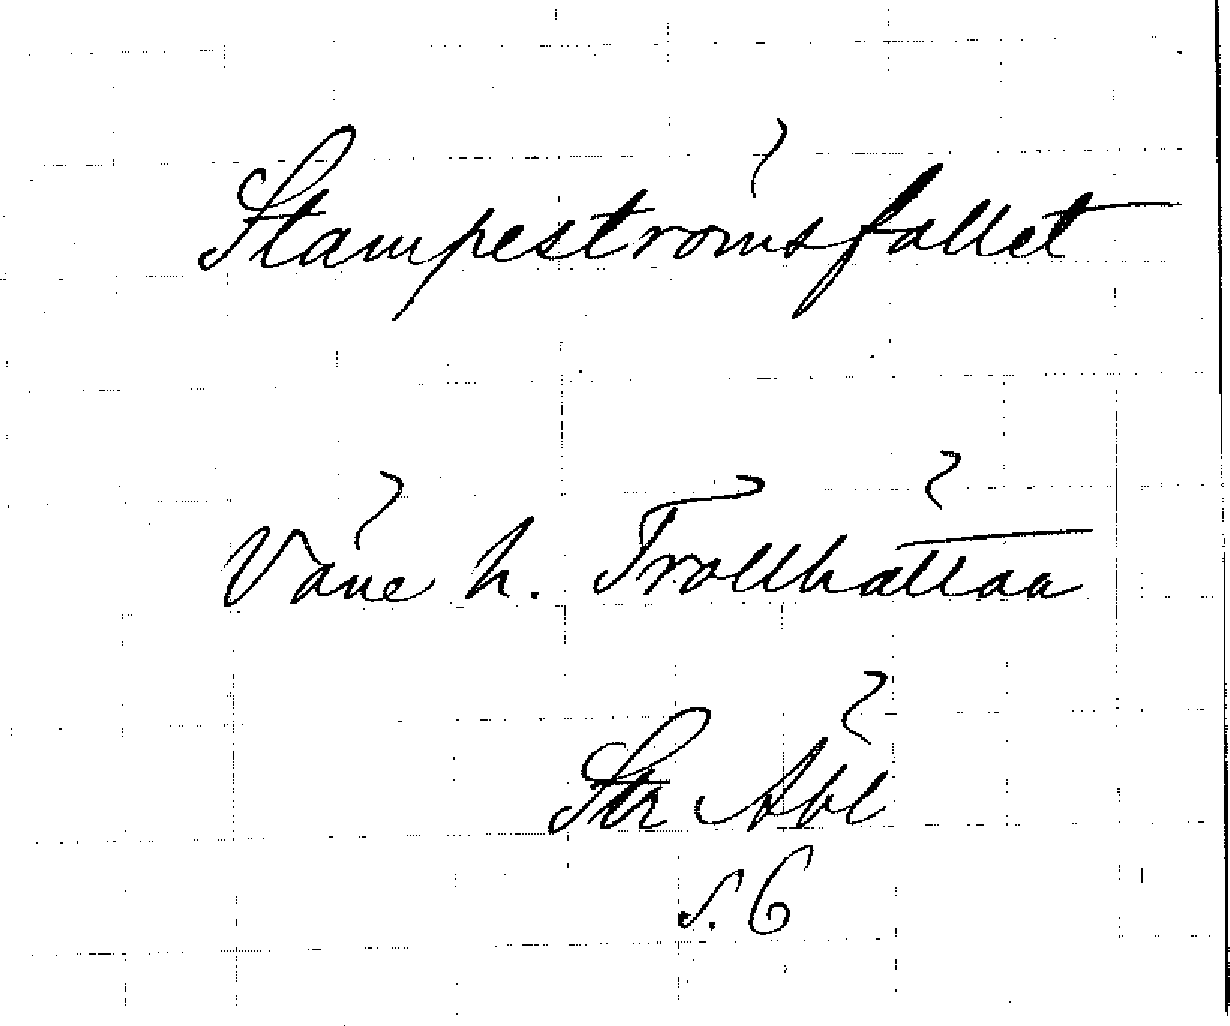 Stampeströmsfallet
Väne h. Trollhättan
Str
s. 6